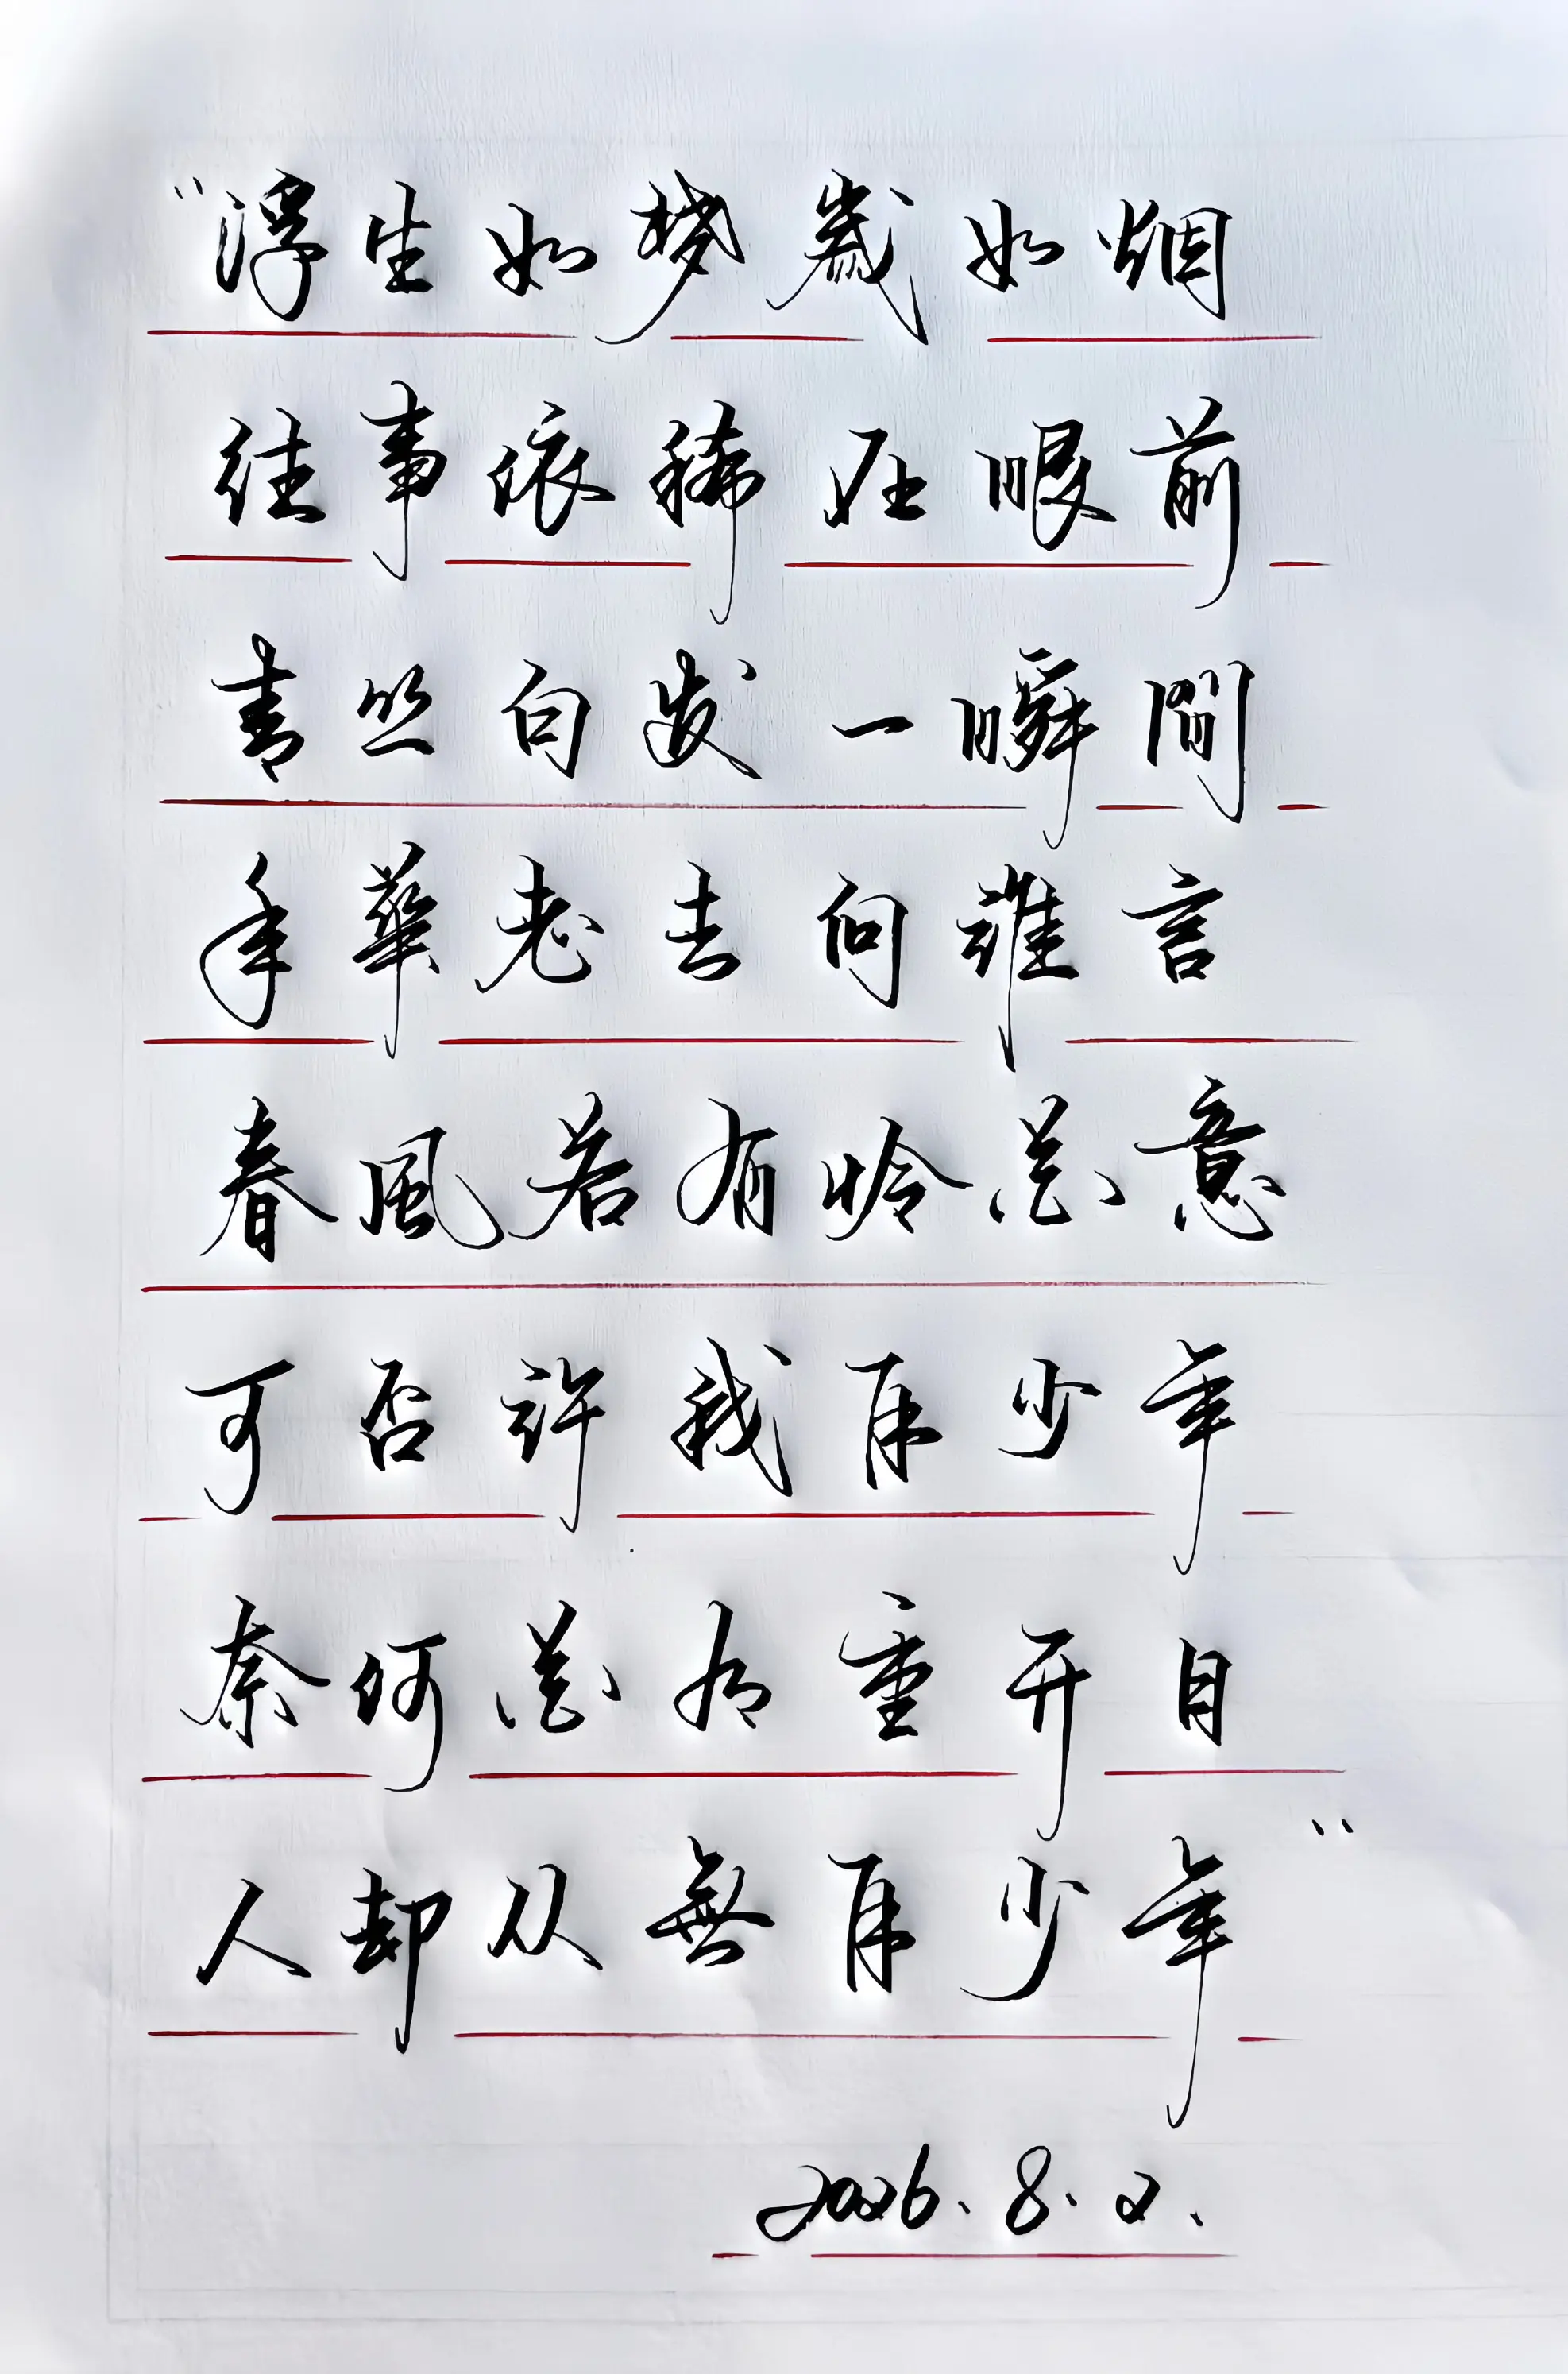 “浮生如梦歲如烟
往事依稀在眼前
青丝白发一瞬間
年華老去向谁言
春風若有怜花意
可否许我再少年
奈何花有重开日
人却从無再少年”
2026.8.2.